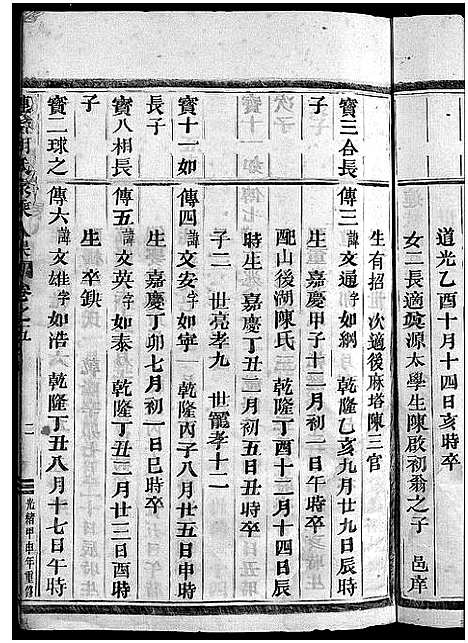 道光乙酉十月十四日亥時卒
女二長適婺源太學生陳啟初翁之子 邑庠
生有招 次適後麻塔陳三官
寶三合長 傳三 諱文通字如納 乾隆乙亥九月廿九日辰
子 時生 嘉慶甲子十二月初一日午時卒
配山後湖陳氏 乾隆丁酉十二月十四日辰
時生 嘉慶丁丑二月初五日丑時卒
子二 世亮孝九 世寵孝十二
寶十一如 傳四 諱文安字如寧 乾隆丙子八月廿五日申時
長子 生 嘉慶丁卯七月初一日巳時卒
寶八相長 傳五 諱文英字如泰 乾隆丁丑二月廿三日酉時
子 生 卒缺
寶二球之 傳六 諱文雄字如浩 乾隆丁丑八月十七日午時
卷之五
二
光緒甲申年重修